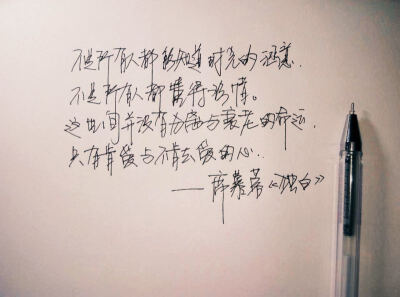 不是所有人都能知道时光的涵意.
不是所有人都懂得珍惜。
这世间并没有分离与衰老的命运.
只有肯爱与不肯去爱的心..
——席慕蓉《独白》